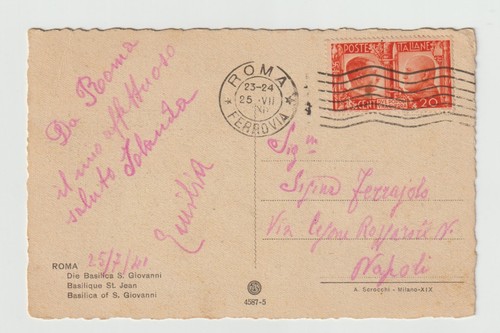 Da Roma
il mio affettuoso
saluto Iolanda
Emilia
25/7/41
ROMA
Die Basilica S. Giovanni
Basilique St. Jean
Basilica of S. Giovanni
ROMA
23-24
25 VII
FERROVIA
POSTE ITALIANE
20
Sig.na
Ferrajolo
Via Cesare N.
Napoli
4587-5
A. Scrocchi - Milano-XIX